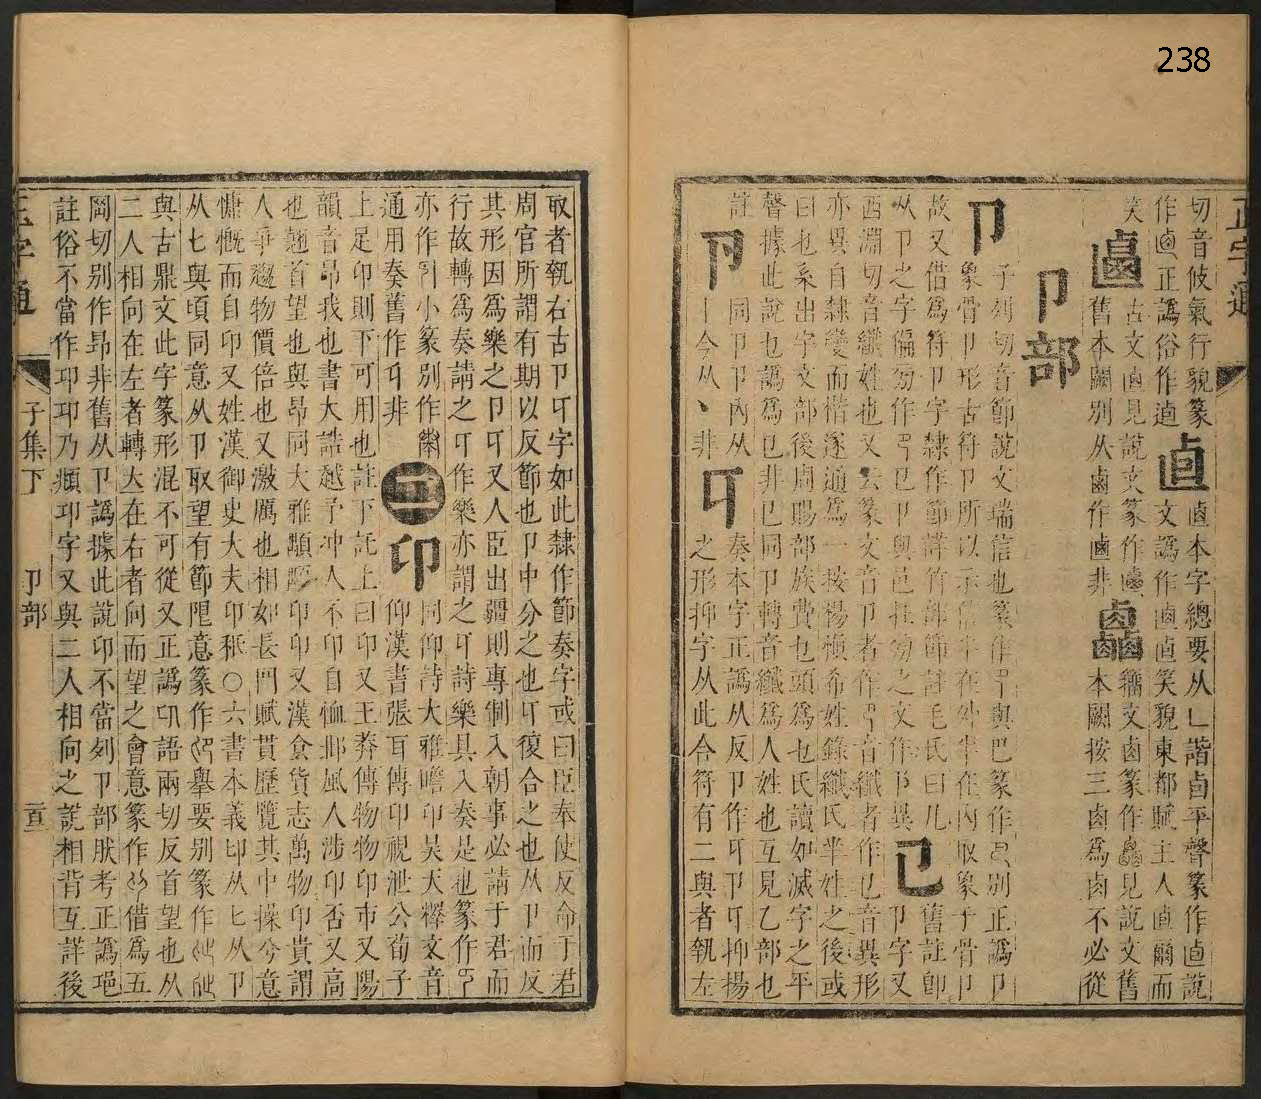 238
正字通
切音攸氣行貌篆𠧴本字總要从乚諧卣平聲篆作𠧪說
作逌正譌俗作逎
文譌作𠧪逌笑貌東都賦主人逌爾而
笑古文卣見說文篆作籒文卣篆作見說文舊
舊本闕別从鹵作非
本闕按三卤為卤不必從
卩部
卩
子列切音節說文瑞信也篆作與巴篆作別正譌卩
象骨卩形古符卩所以示信半在外半在內取象于骨卩
故又借為符卩字隸作節詳竹部節註毛氏曰凡
从卩之字偏旁作㔾卩與邑在旁之文作阝異
㔾
舊註卽
卩字又
西淵切音纖姓也又云篆文音卩者作音纖者作㔾音異形
亦異自隸變而楷遂通為一按楊愼希姓錄纖氏芈姓之後或
曰也系出字文部後周賜部族費也頭為也氏讀如滅字之平
聲據此說也譌為㔾非㔾同卩轉音纖為人姓也互見乙部也
註
同卩卩內从
丨今从丶非
奏本字正譌从反卩作卩抑揚
之形抑字从此合符有二與者執左
取者執右古卩字如此隸作節奏字或曰臣奉使反命于君
周官所謂有期以反節也卩中分之也復合之也从卩而反
其形因為樂之卩又人臣出疆則專制入朝事必請于君而
行故轉為奏請之作樂亦謂之詩樂具入奏是也篆作
亦作小篆別作
通用奏舊作非
二
卬
同仰詩大雅瞻卬昊天釋文音
仰漢書張耳傳卬視泄公荀子
上足卬則下可用也註下託上曰卬又王莽傳物物卬市又陽
韻音昂我也書大誥越予冲人不卬自恤邶風人涉卬否又高
也翹首望也與昂同大雅顒顒卬卬又漢食貨志萬物卬貴謂
人爭趨物價倍也又激厲也相如長門賦貫歷覽其中操兮意
慷慨而自卬又姓漢御史大夫卬秪〇六書本義卬从匕从卩
从匕與頃同意从卩取望有節限意篆作舉要別篆作
與古鼎文此字篆形混不可從又正譌卬語兩切反首望也从
二人相向在左者轉在右者向而望之會意篆作借為五
岡切別作昻非舊从卩譌據此說卬不當列卩部朕考正譌
註俗不當作卭卭乃頫卭字又與二人相向之說相背互詳後
正字通
子集下
卩部